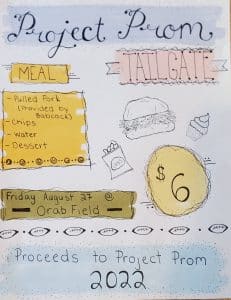 Project Prom
TAILGATE
MEAL
- Pulled Pork
(Provided by
Babcock)
- Chips
- Water
- Dessert
$6
Friday August 27 @
Orab Field
Proceeds to Project Prom
2022